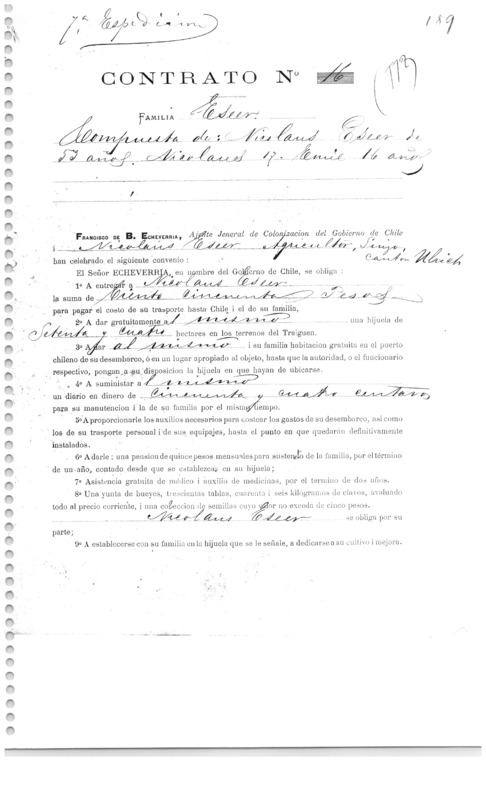 7ª Espedicion
189
CONTRATO Nº 16
(173)
FAMILIA Eseer.
Compuesta de: Nicolaus Eseer de
53 años. Nicolaus 17. Emil 16 años
FRANCISCO DE B. ECHEVERRIA, Ajente Jeneral de Colonizacion del Gobierno de Chile
i Nicolaus Eseer Agricultor, Suizo,
han celebrado el siguiente convenio: canton Zürich
El Señor ECHEVERRIA, en nombre del Gobierno de Chile, se obliga:
1º A entregar a Nicolaus Eseer
la suma de Ciento cincuenta Pesos
para pagar el costo de su trasporte hasta Chile i el de su familia,
2º A dar gratuitamente al mismo una hijuela de
Setenta y cuatro hectares en los terrenos del Traiguen.
3º A dar al mismo i su familia habitacion gratuita en el puerto
chileno de su desembarco, ó en un lugar apropiado al objeto, hasta que la autoridad, o el funcionario
respectivo, pongan a su disposicion la hijuela en que hayan de ubicarse.
4º A suministar al mismo
un diario en dinero de cincuenta y cuatro centavos
para su manutencion i la de su familia por el mismo tiempo.
5º A proporcionarle los auxilios necesarios para costear los gastos de su desembarco, asi como
los de su trasporte personal i de sus equipajes, hasta el punto en que quedarán definitivamente
instalados.
6º A darle; una pension de quince pesos mensuales para sustento de la familia, por el término
de un año, contado desde que se establezcan en su hijuela;
7º Asistencia gratuita de médico i auxilio de medicinas, por el termino de dos años.
8º Una yunta de bueyes, trescientas tablas, cuarenta i seis kilógramos de clavos, avaluado
todo al precio corriente, i una coleccion de semillas cuyo valor no exceda de cinco pesos.
Nicolaus Eseer se obliga por su
parte;
9º A establecerse con su familia en la hijuela que se le señale, a dedicarse a su cultivo i mejora.